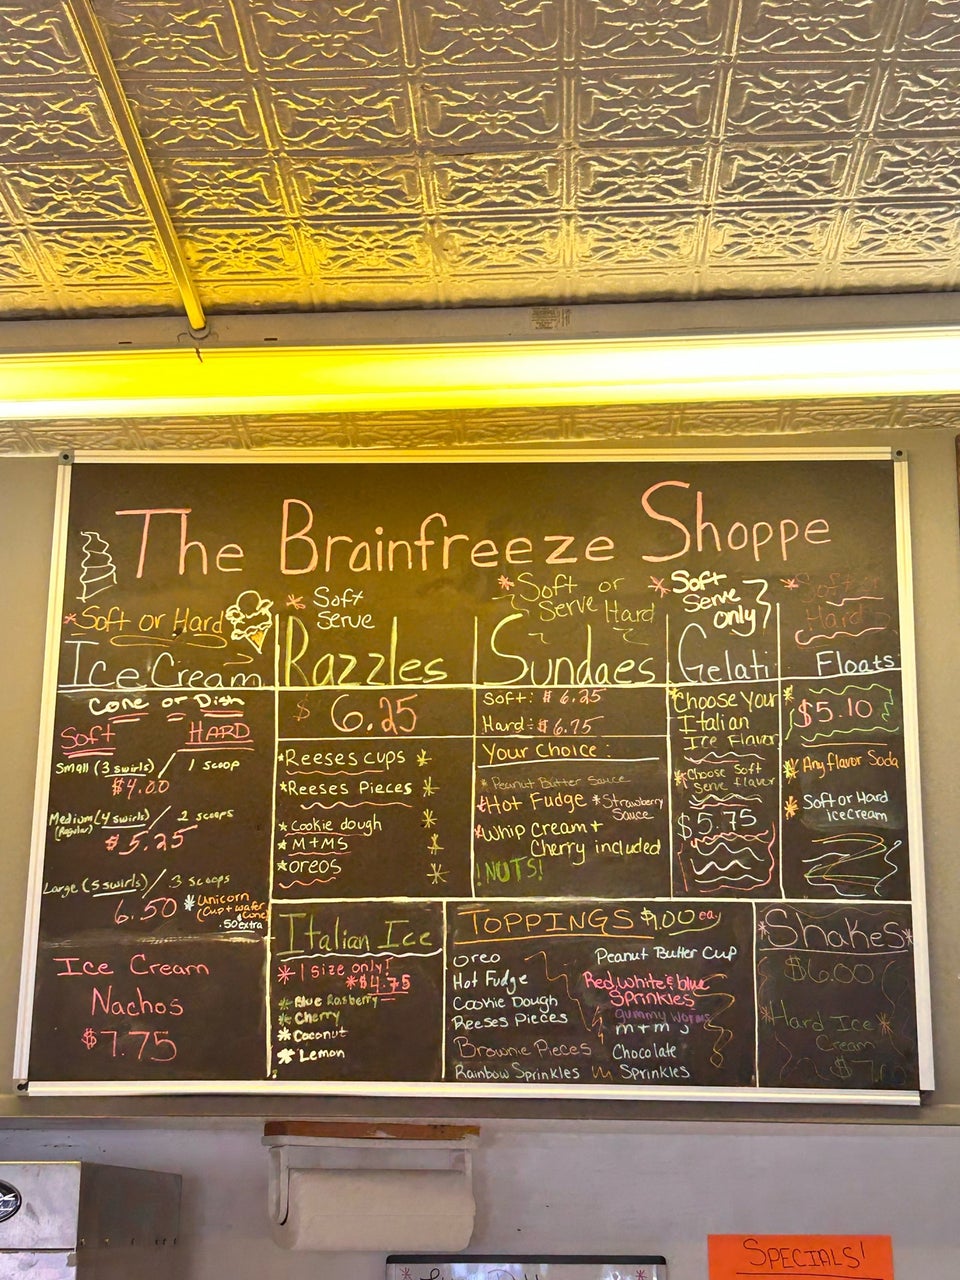 The Brainfreeze Shoppe
*Soft or Hard
Ice Cream
Cone or Dish
Soft HARD
Small (3 swirls) / 1 scoop
$4.00
Medium (4 swirls) / 2 scoops
(Regular)
$5.25
Large (5 swirls) / 3 scoops
6.50
*Unicorn
(Cup + wafer
Cone)
.50 extra
Ice Cream
Nachos
$7.75
* Soft
Serve
Razzles
$ 6.25
*Reeses cups *
*Reeses Pieces *
*Cookie dough *
*M+MS *
*oreos *
* Soft or
Serve Hard
Sundaes
Soft: $6.25
Hard: $6.75
Your Choice:
*Peanut Butter Sauce
*Hot Fudge *Strawberry
Sauce
*Whip Cream +
Cherry included
!NUTS!
* Soft
Serve
only
Gelati
*Choose Your
Italian
Ice Flavor
*Choose Soft
Serve Flavor
$5.75
* Soft or
Hard
Floats
* $5.10
* Any flavor Soda
* Soft or Hard
ice cream
Italian Ice
* 1 size only!
*$4.75
* Blue Rasberry
* Cherry
* Coconut
* Lemon
TOPPINGS $1.00 ea.
Oreo
Hot Fudge
Cookie Dough
Reeses Pieces
Brownie Pieces
Rainbow Sprinkles
Peanut Butter Cup
Red, white & blue
Sprinkles
gummy worms
m+m's
Chocolate
Sprinkles
*Shakes*
$6.00
*Hard Ice*
Cream
SPECIALS!